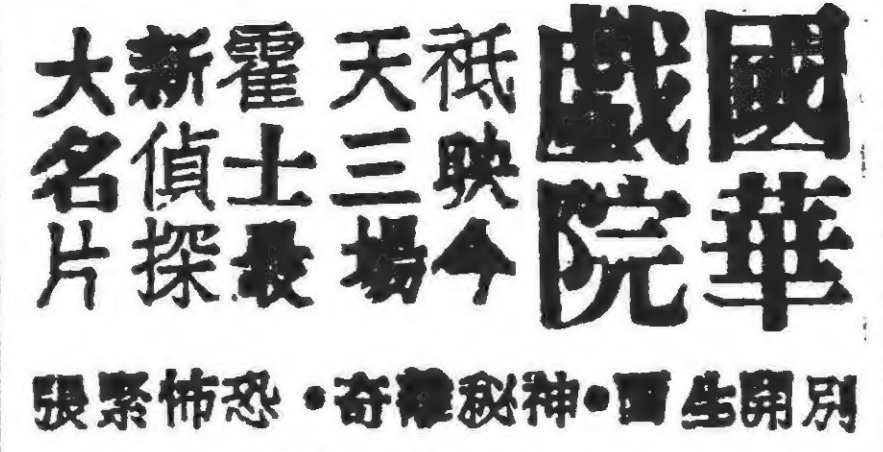 國華
戲院
祇映今
天三場
霍士最
新偵探
大名片
別開生面•神秘離奇•恐怖緊張